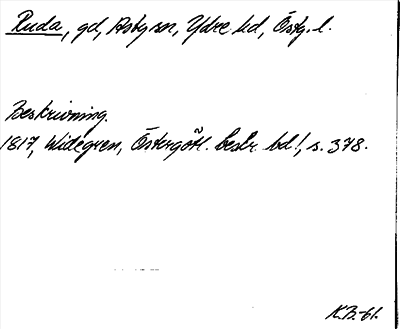 Ruda, gd, Asby sn, Ydre hd, Östg. l.
Beskrivning.
1817, Widegren, Östergötl. beskr. bd!, s. 378.
K.B.-61.